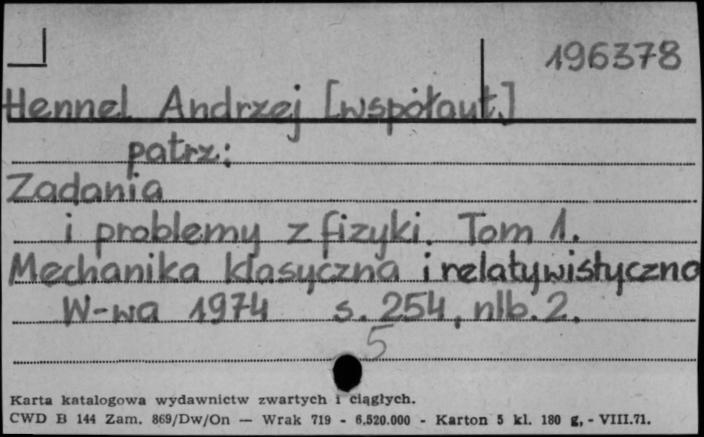 196378
Hennel Andrzej [współaut.]
patrz:
Zadania
i problemy z fizyki. Tom 1.
Mechanika klasyczna i relatywistyczna
W-wa 1974 s. 254, nlb. 2.
5
Karta katalogowa wydawnictw zwartych i ciągłych.
CWD B 144 Zam. 869/Dw/On — Wrak 719 - 6,520.000 - Karton 5 kl. 180 g, - VIII.71.